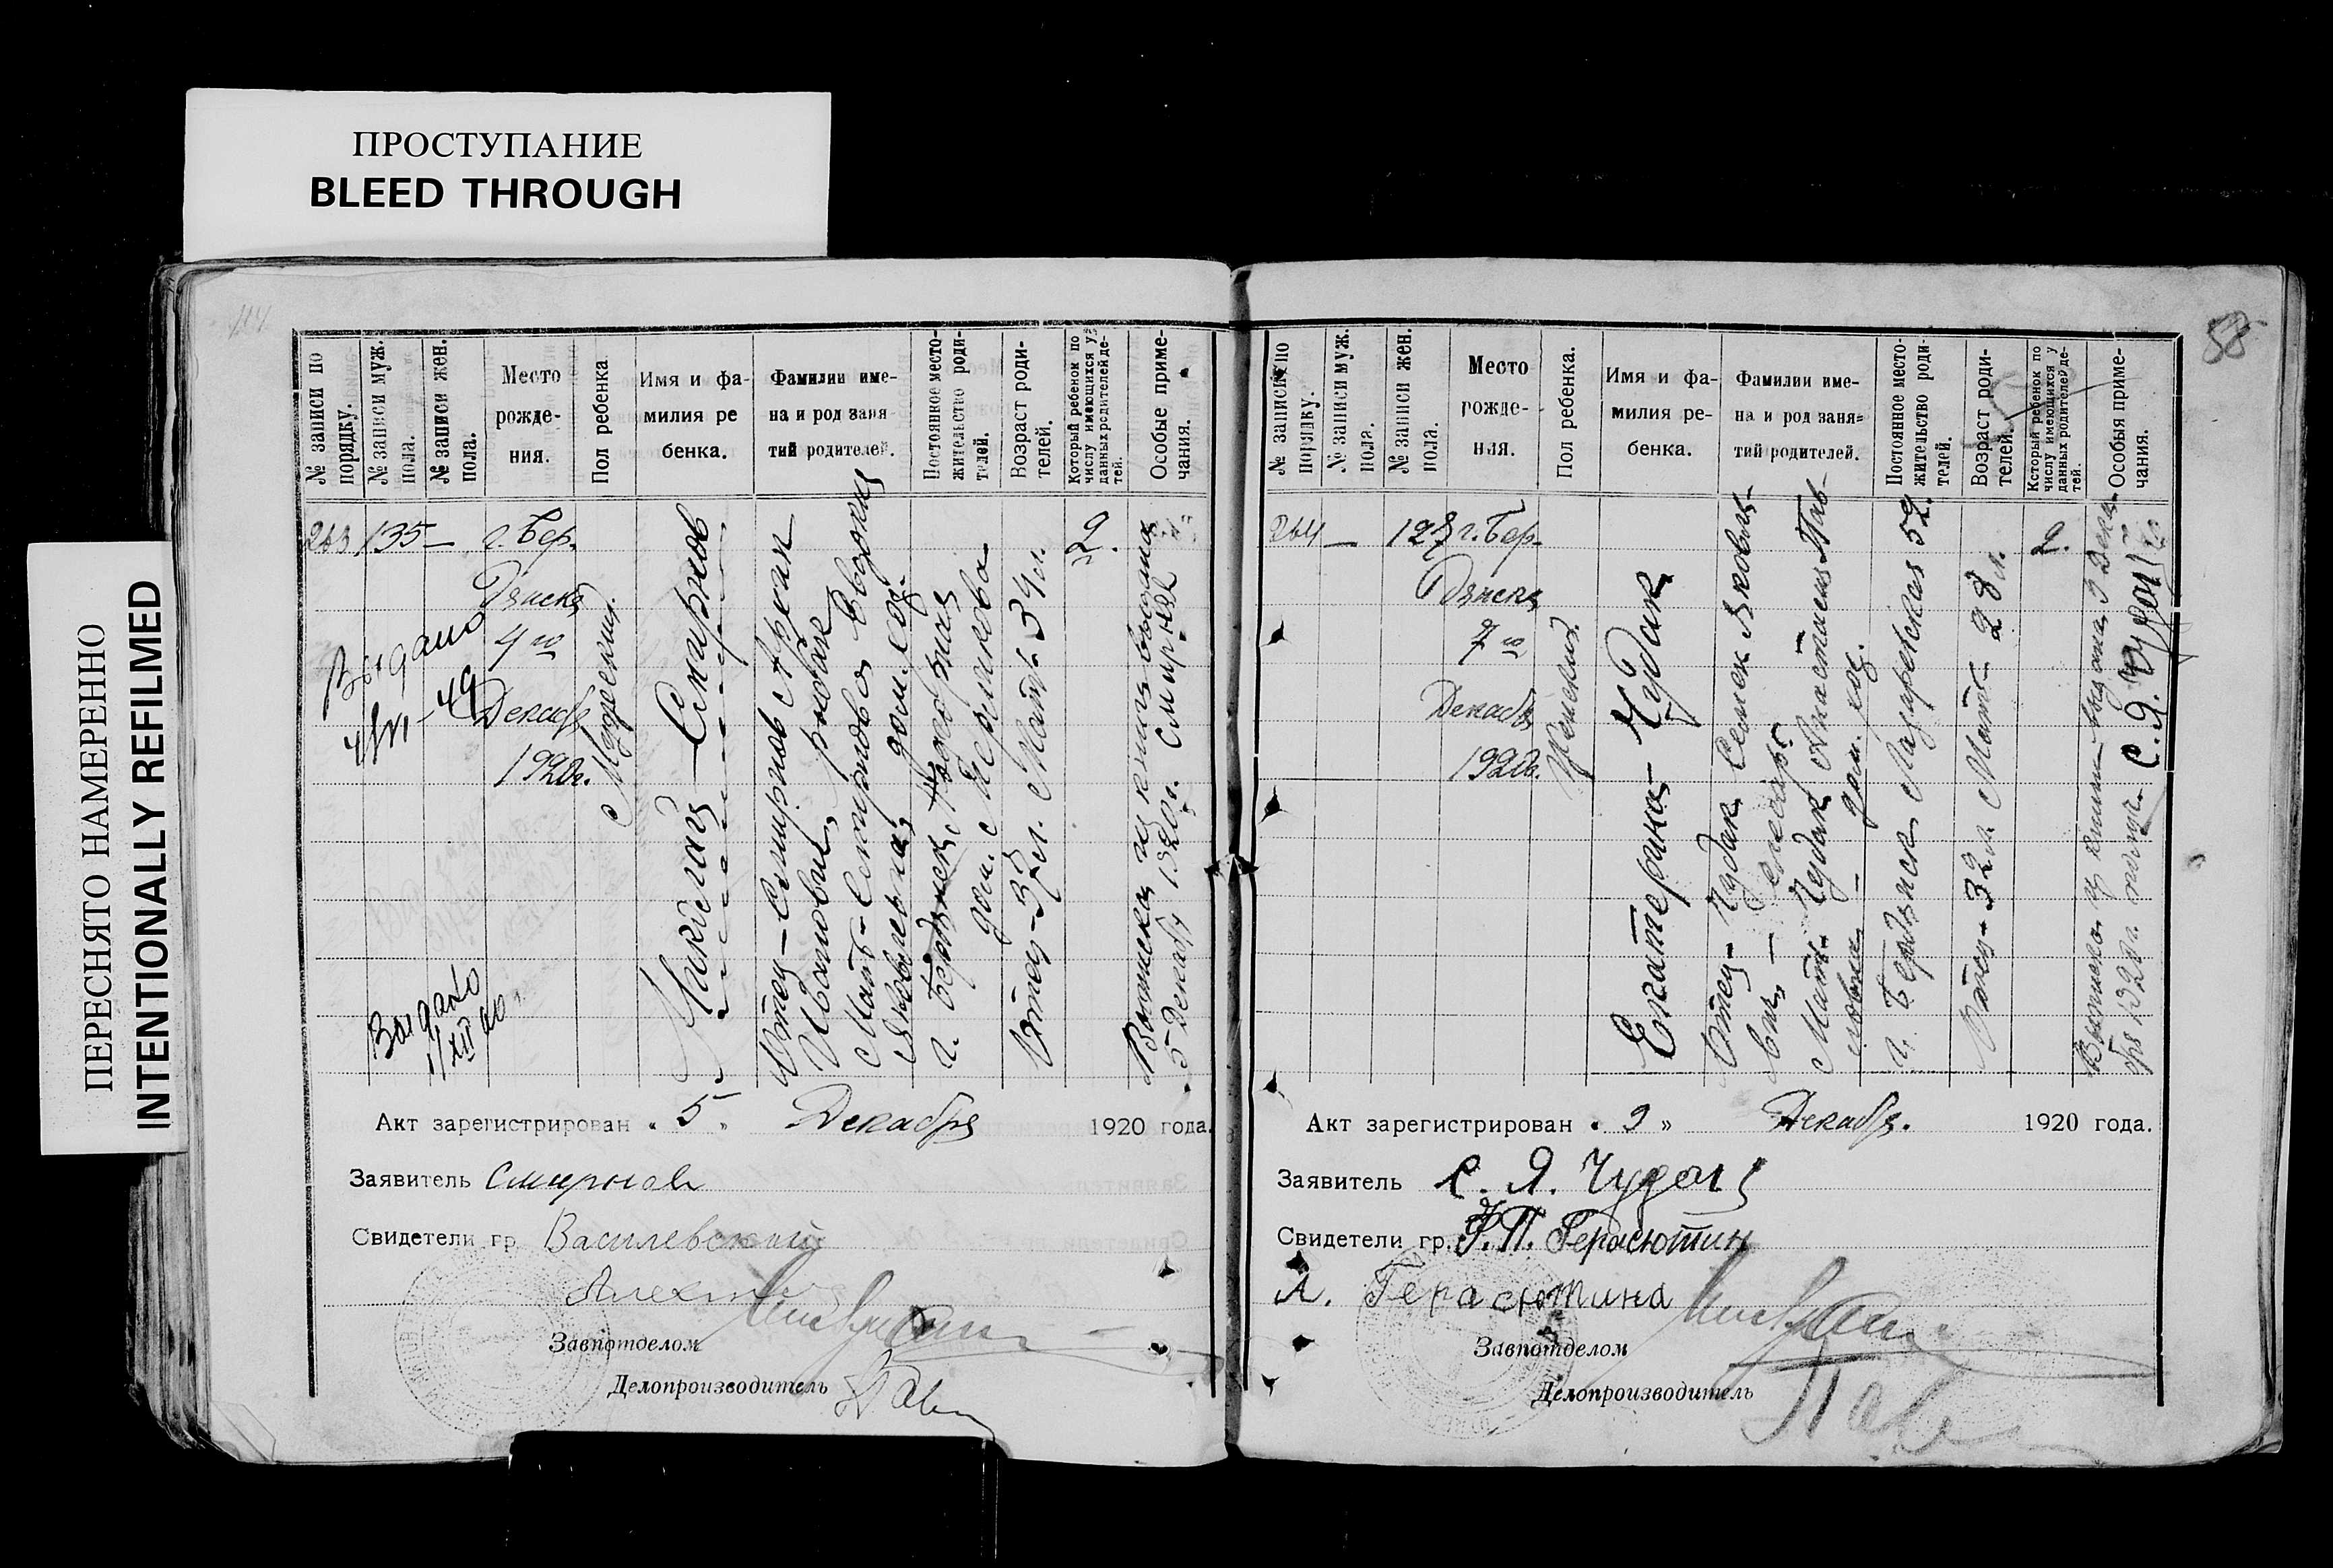 ПРОСТУПАНИЕ
BLEED THROUGH
ПЕРЕСНЯТО НАМЕРЕННО
INTENTIONALLY REFILMED
№ записи по порядку.
№ записи муж. пола.
№ записи жен. пола.
Место рожде-ния.
Пол ребенка
Имя и фа-милия ре бенка.
Фамилии име-на и род заня-тий родителей.
Постоянное место-жительство роди-телей.
Возраст роди-телей.
Который ребенок по числу имеющихся у данных родителей де-тей.
Особые приме-чания.
263
135
—
г. Бер-
дянск
4го
Декабр
1920г.
Мужеский
Николай Смирнов
Отец – Смирнов
Иванович,
Мать – Смирнова Евдокия
Яковлевна, дом. хоз.
г. Бердянск
дом. Мерликова
Отец – 35 л. Мать 34 л.
2.
Выписка из книги выдана
5 Декабр 1920г. Смирнов
Выдано
Выдано
Акт зарегистрирован „ 5 „ Декабря 1920 года.
Заявитель Смирнов
Свидетели гр. Василевский
Завпотделом
Делопроизводитель
58
№ записи по порядку.
№ записи муж. пола.
№ записи жен. пола.
Место рожде-ния.
Пол ребенка.
Имя и фа-милия ре-бенка.
Фамилии име-на и род заня-тий родителей.
Постоянное место-жительство роди-телей.
Возраст роди-телей.
Который ребенок по числу имеющихся у данных родителей де-тей.
Особыя приме-чания.
264
—
128
г. Бер-
дянск
7го
Декабр
1920г.
Женский
Екатерина – Чудак
Отец – Чудак Семен Яковле-
вич – слесарь
Мать – Чудак Анастасия Пав-
ловна – дом. хоз.
г. Бердянск Мазиревская 52.
Отец – 32 л. Мать – 28 л.
2.
Выписка из книги выдана 9 Декаб-
бря 1920г. получил С. Я. Чудак
Акт зарегистрирован „ 9 „ Декабря. 1920 года.
Заявитель С. Я. Чудак
Свидетели гр. П. Герасютин
А. Герасютина
Завпотделом
Делопроизводитель